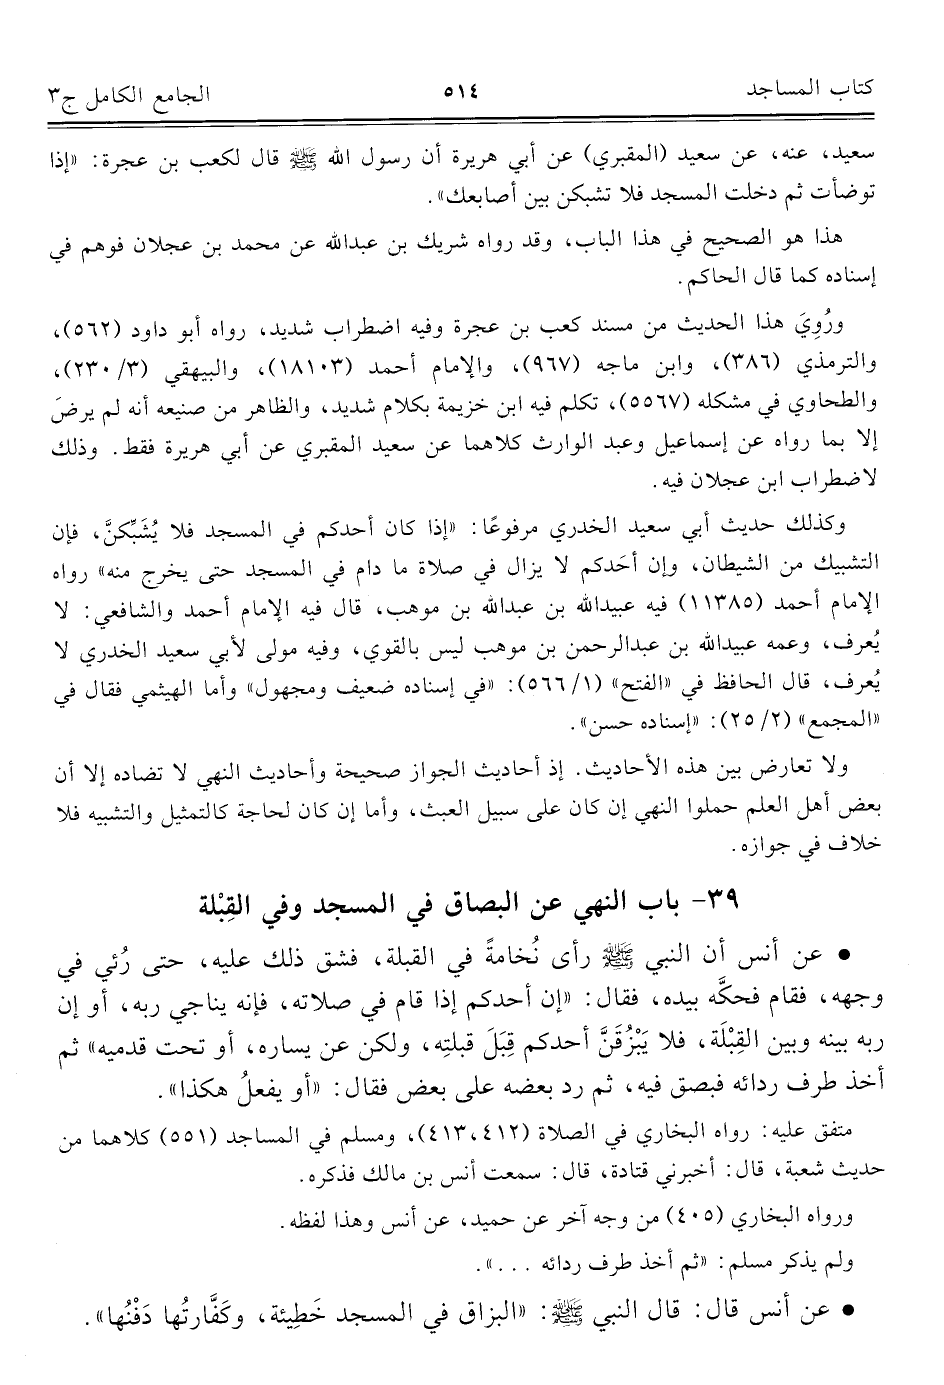 كتاب المساجد ٥١٤ الجامع الكامل ج٣
سعيد، عنه، عن سعيد (المقبري) عن أبي هريرة أن رسول الله ﷺ قال لكعب بن عجرة: «إذا
توضأت ثم دخلت المسجد فلا تشبكن بين أصابعك».
هذا هو الصحيح في هذا الباب، وقد رواه شريك بن عبدالله عن محمد بن عجلان فوهم في
إسناده كما قال الحاكم.
ورُوِيَ هذا الحديث من مسند كعب بن عجرة وفيه اضطراب شديد، رواه أبو داود (٥٦٢)،
والترمذي (٣٨٦)، وابن ماجه (٩٦٧)، والإمام أحمد (١٨١٠٣)، والبيهقي (٢٣٠/٣)،
والطحاوي في مشكله (٥٥٦٧)، تكلم فيه ابن خزيمة بكلام شديد، والظاهر من صنيعه أنه لم يرضَ
إلا بما رواه عن إسماعيل وعبد الوارث كلاهما عن سعيد المقبري عن أبي هريرة فقط. وذلك
لاضطراب ابن عجلان فيه.
وكذلك حديث أبي سعيد الخدري مرفوعًا: «إذا كان أحدكم في المسجد فلا يُشَبِّكنَّ، فإن
التشبيك من الشيطان، وإن أحَدكم لا يزال في صلاة ما دام في المسجد حتى يخرج منه» رواه
الإمام أحمد (١١٣٨٥) فيه عبيدالله بن عبدالله بن موهب، قال فيه الإمام أحمد والشافعي: لا
يُعرف، وعمه عبيدالله بن عبدالرحمن بن موهب ليس بالقوي، وفيه مولى لأبي سعيد الخدري لا
يُعرف، قال الحافظ في «الفتح» (٥٦٦/١): «في إسناده ضعيف ومجهول» وأما الهيثمي فقال في
«المجمع» (٢٥/٢): «إسناده حسن».
ولا تعارض بين هذه الأحاديث. إذ أحاديث الجواز صحيحة وأحاديث النهي لا تضاده إلا أن
بعض أهل العلم حملوا النهي إن كان على سبيل العبث، وأما إن كان لحاجة كالتمثيل والتشبيه فلا
خلاف في جوازه.
٣٩- باب النهي عن البصاق في المسجد وفي القِبْلة
• عن أنس أن النبي ﷺ رأى نُخامةً في القبلة، فشق ذلك عليه، حتى رُئي في
وجهه، فقام فحكَّه بيده، فقال: «إن أحدكم إذا قام في صلاته، فإنه يناجي ربه، أو إن
ربه بينه وبين القِبْلَة، فلا يَبْزُقَنَّ أحدكم قِبَلَ قبلتِه، ولكن عن يساره، أو تحت قدميه» ثم
أخذ طرف ردائه فبصق فيه، ثم رد بعضه على بعض فقال: «أو يفعلُ هكذا».
متفق عليه: رواه البخاري في الصلاة (٤١٢، ٤١٣)، ومسلم في المساجد (٥٥١) كلاهما من
حديث شعبة، قال: أخبرني قتادة، قال: سمعت أنس بن مالك فذكره.
ورواه البخاري (٤٠٥) من وجه آخر عن حميد، عن أنس وهذا لفظه.
ولم يذكر مسلم: «ثم أخذ طرف ردائه ...».
• عن أنس قال: قال النبي ﷺ: «البزاق في المسجد خَطِيئة، وكَفَّارتُها دَفْنُها».